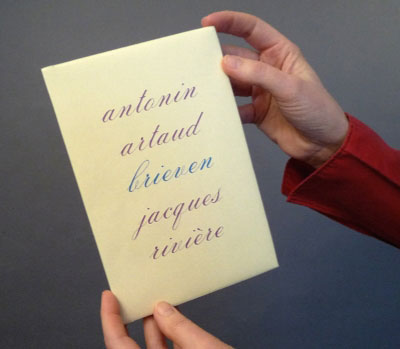 antonin
artaud
brieven
jacques
rivière